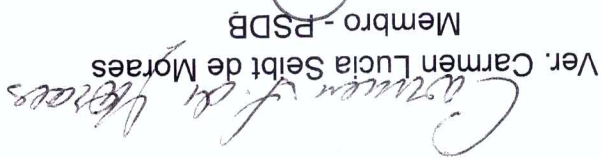 Carmen S. de Moraes
Ver. Carmen Lucia Seibt de Moraes
Membro - PSDB